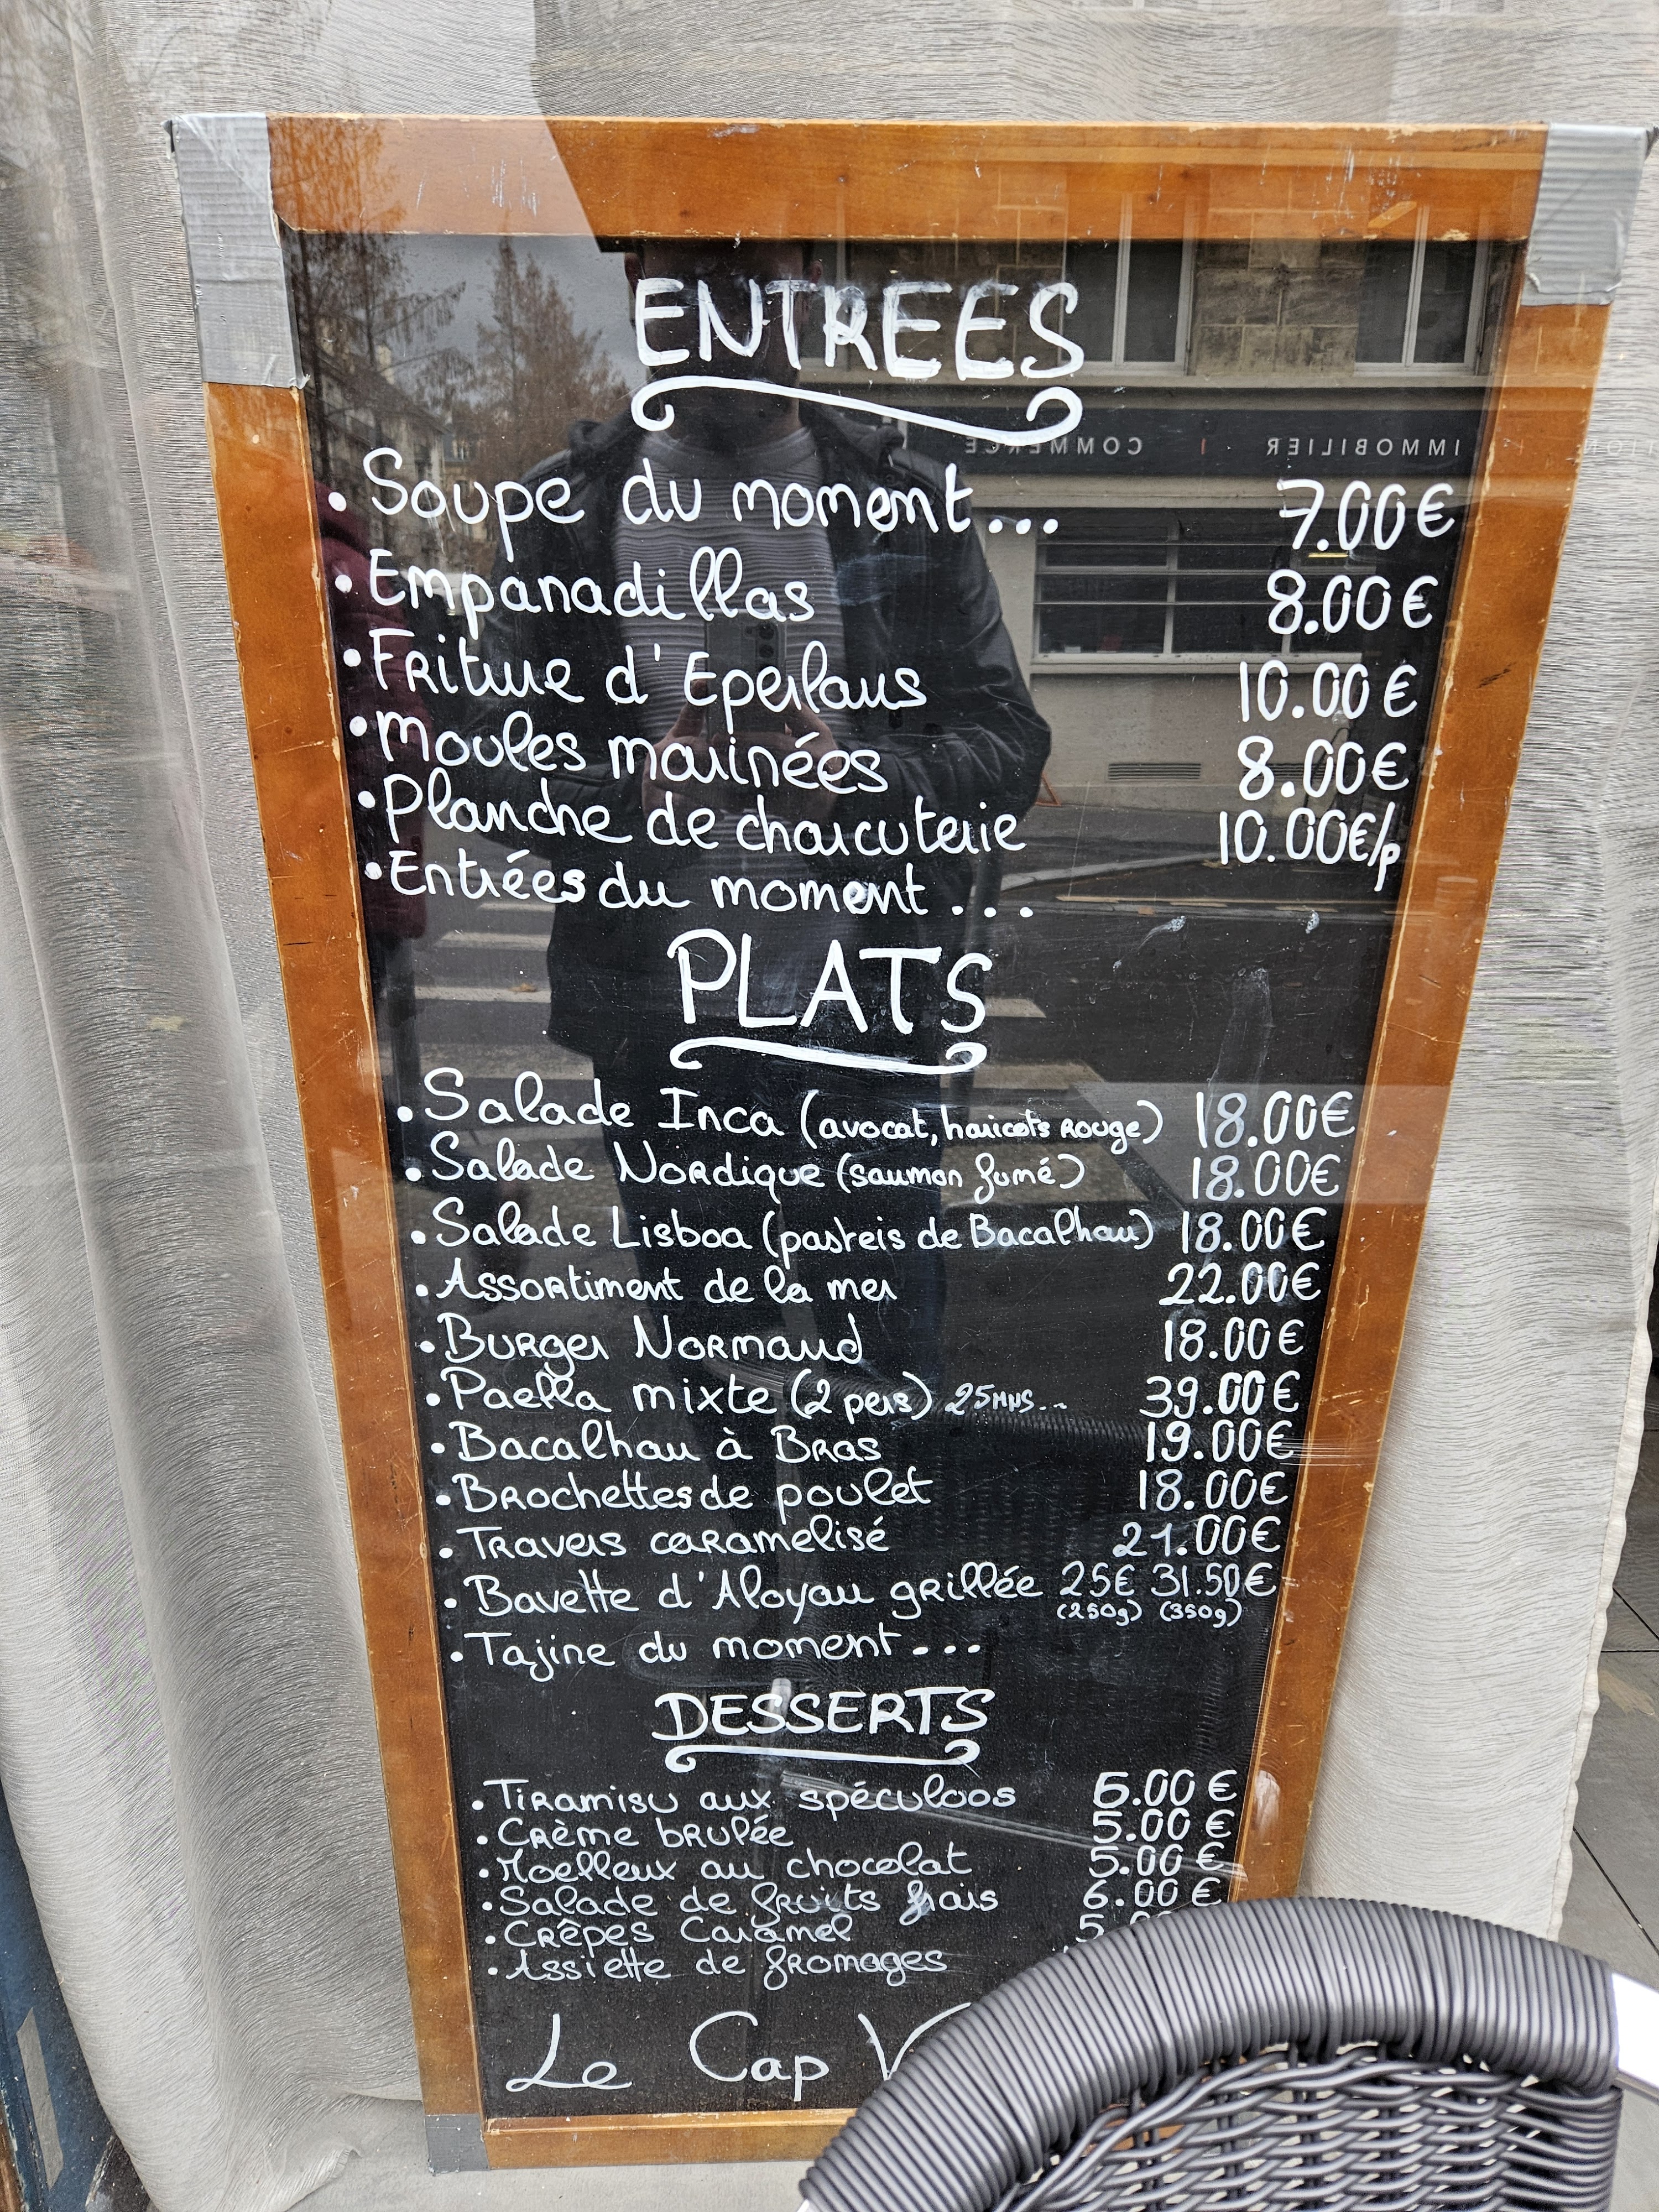 ENTREES
. Soupe du moment... 7.00€
. Empanadillas 8.00€
. Friture d'Eperlans 10.00€
. Moules marinées 8.00€
. Planche de charcuterie 10.00€/p
. Entrées du moment ...
PLATS
. Salade Inca (avocat, haricots rouge) 18.00€
. Salade Nordique (saumon fumé) 18.00€
. Salade Lisboa (pasteis de Bacalhau) 18.00€
. Assortiment de la mer 22.00€
. Burger Normand 18.00€
. Paella mixte (2 pers) 25mns... 39.00€
. Bacalhau à Bras 19.00€
. Brochettes de poulet 18.00€
. Travers caramelisé 21.00€
. Bavette d'Aloyau grillée 25€ 31.50€
(250g) (350g)
. Tajine du moment...
DESSERTS
. Tiramisu aux spéculoos 5.00€
. Crème brulée 5.00€
. Moelleux au chocolat 5.00€
. Salade de fruits frais 6.00€
. Crêpes Caramel
. Assiette de fromages
Le Cap
COMMERCE | IMMOBILIER